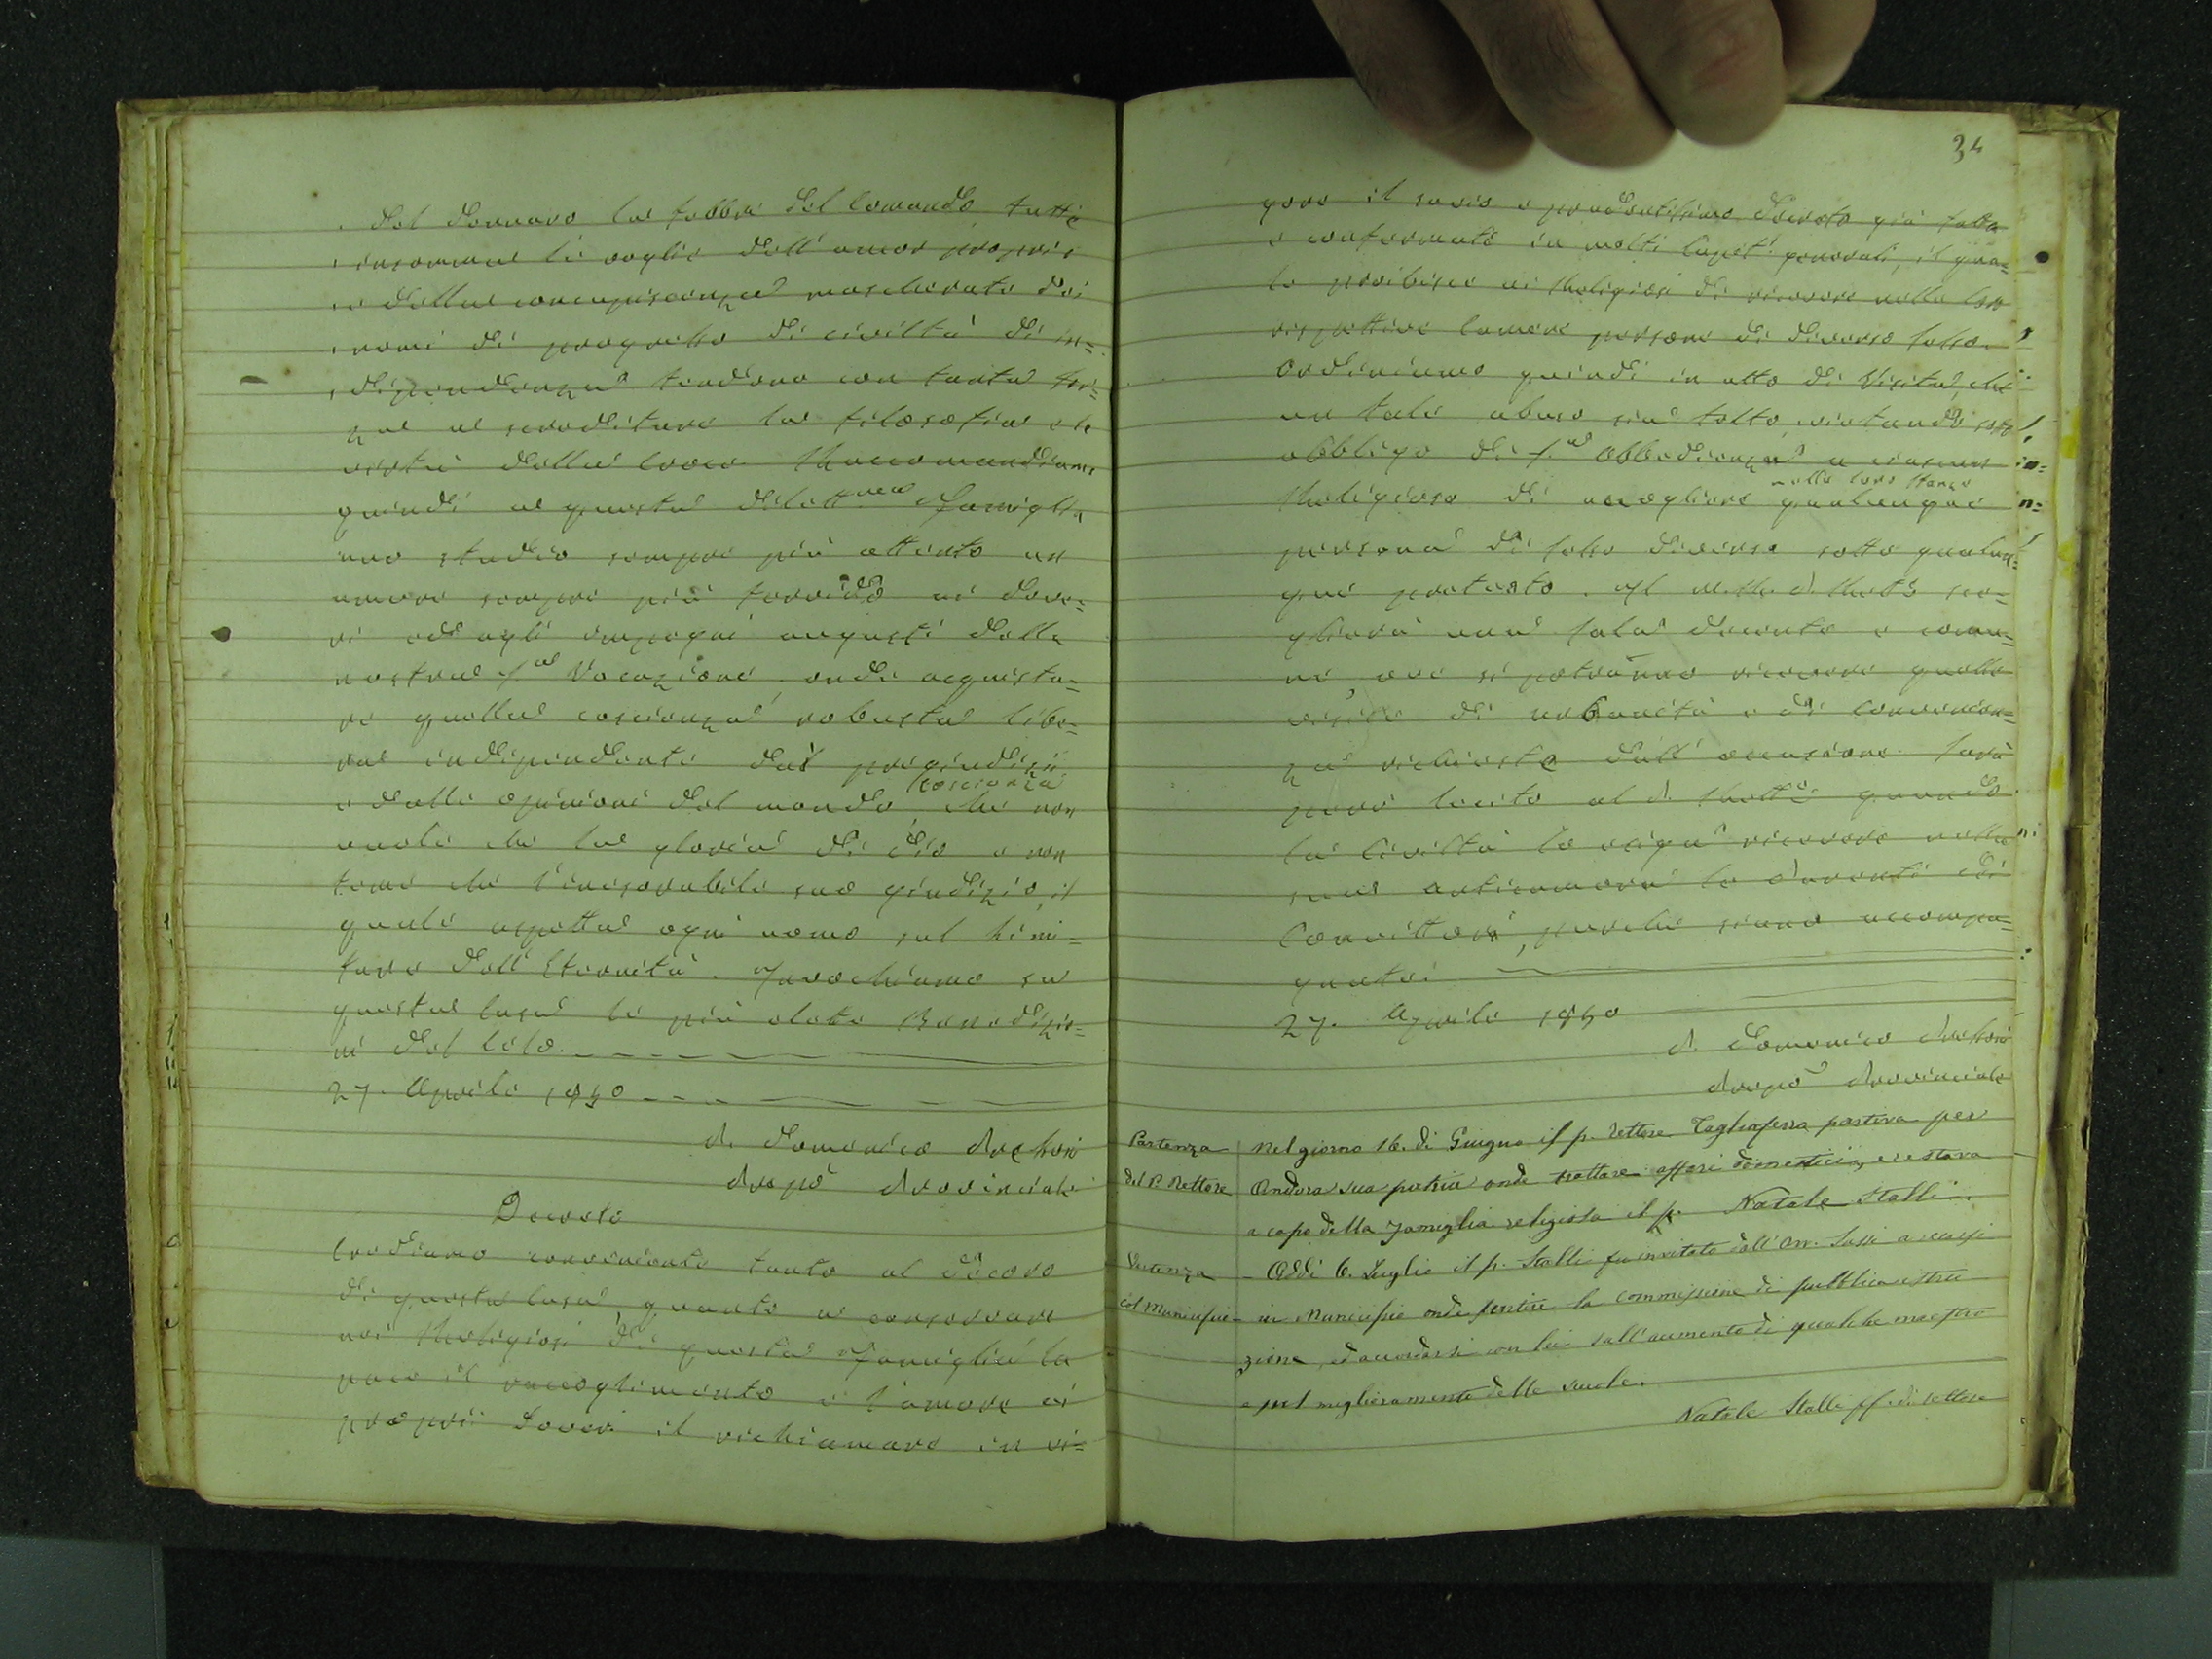 del denaro la febbre del comando, tutte
insomma le voglie dell'amor proprio
e della concupiscenza mascherate dei
nomi di progresso di civiltà di in=
dipendenza tendono con tanta for=
za a screditare la filosofia e la
virtù della Croce. Raccomandiamo
quindi a questa dilett.ma Famiglia
uno studio sempre più attento un
amore sempre più fervido ai dove=
ri ed agli impegni augusti della
nostra S.a Vocazione, onde acquista=
re quella coscienza robusta libe=
ra indipendente dai pregiudizii
e dalle opinioni del mondo, coscienza che non
vuole che la gloria di Dio e non
teme che l'inesorabile suo giudizio, il
quale aspetta ogni uomo sul limi=
tare dell'Eternità. Invochiamo su
questa Casa le più elette Benedizio=
ni del Cielo.
27. Aprile 1850
D. Domenico
Prep.o Provinciale
Decreto
Crediamo conveniente tanto al decoro
di questa Casa, quanto a conservare
nei Religiosi di questa Famiglia la
pace il raccoglimento e l'amore ai
proprii doveri il richiamare in vi=
34
gore il savio e prudentissimo Decreto già fatto
e confermato in molti Capit.i generali, il qua=
le proibisce ai Religiosi di ricevere nelle loro
rispettive Camere persone di diverso sesso.
Ordiniamo quindi in atto di Visita, che
un tale abuso sia tolto, vietando sotto
obbligo di S.a Obbedienza a ciascun
Religioso di accogliere nelle loro stanze qualunque
persona di sesso diverso sotto qualun=
que pretesto. Il M. R. P. Rett.e sce=
glierà una sala decente e comu=
ne, ove si potranno ricevere quelle
visite di urbanità e di convenien=
za richieste dall'occasione. Sarà
però lecito al P. Rett.e quando
la civiltà lo esiga ricevere nella
sua anticamera le parenti dei
Convittori, purchè siano accompa=
gnate.
27. Aprile 1850
D. Domenico
Prep.o Provinciale
Partenza Nel giorno 16. di Giugno il p. Rettore Tagliaferro partiva per
del P. Rettore Andora sua patria onde trattare affari domestici, e restava
a capo della famiglia religiosa il p. Natale Stalli.
Vertenza - Addì 6. Luglio il p. Stalli fu invitato dall'Avv. Sassi a recarsi
col Municipio - in Municipio onde sentire la commissione di pubblica istru
zione, ed accordarsi con lei sull'aumento di qualche maestro
e pel miglioramento delle scuole.
Natale Stalli ff. di rettore